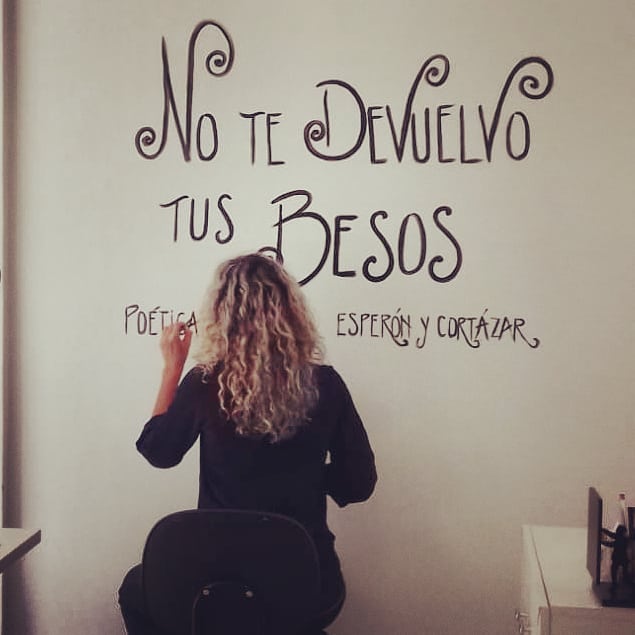 No te Devuelvo
tus Besos
Poética Esperón y Cortázar